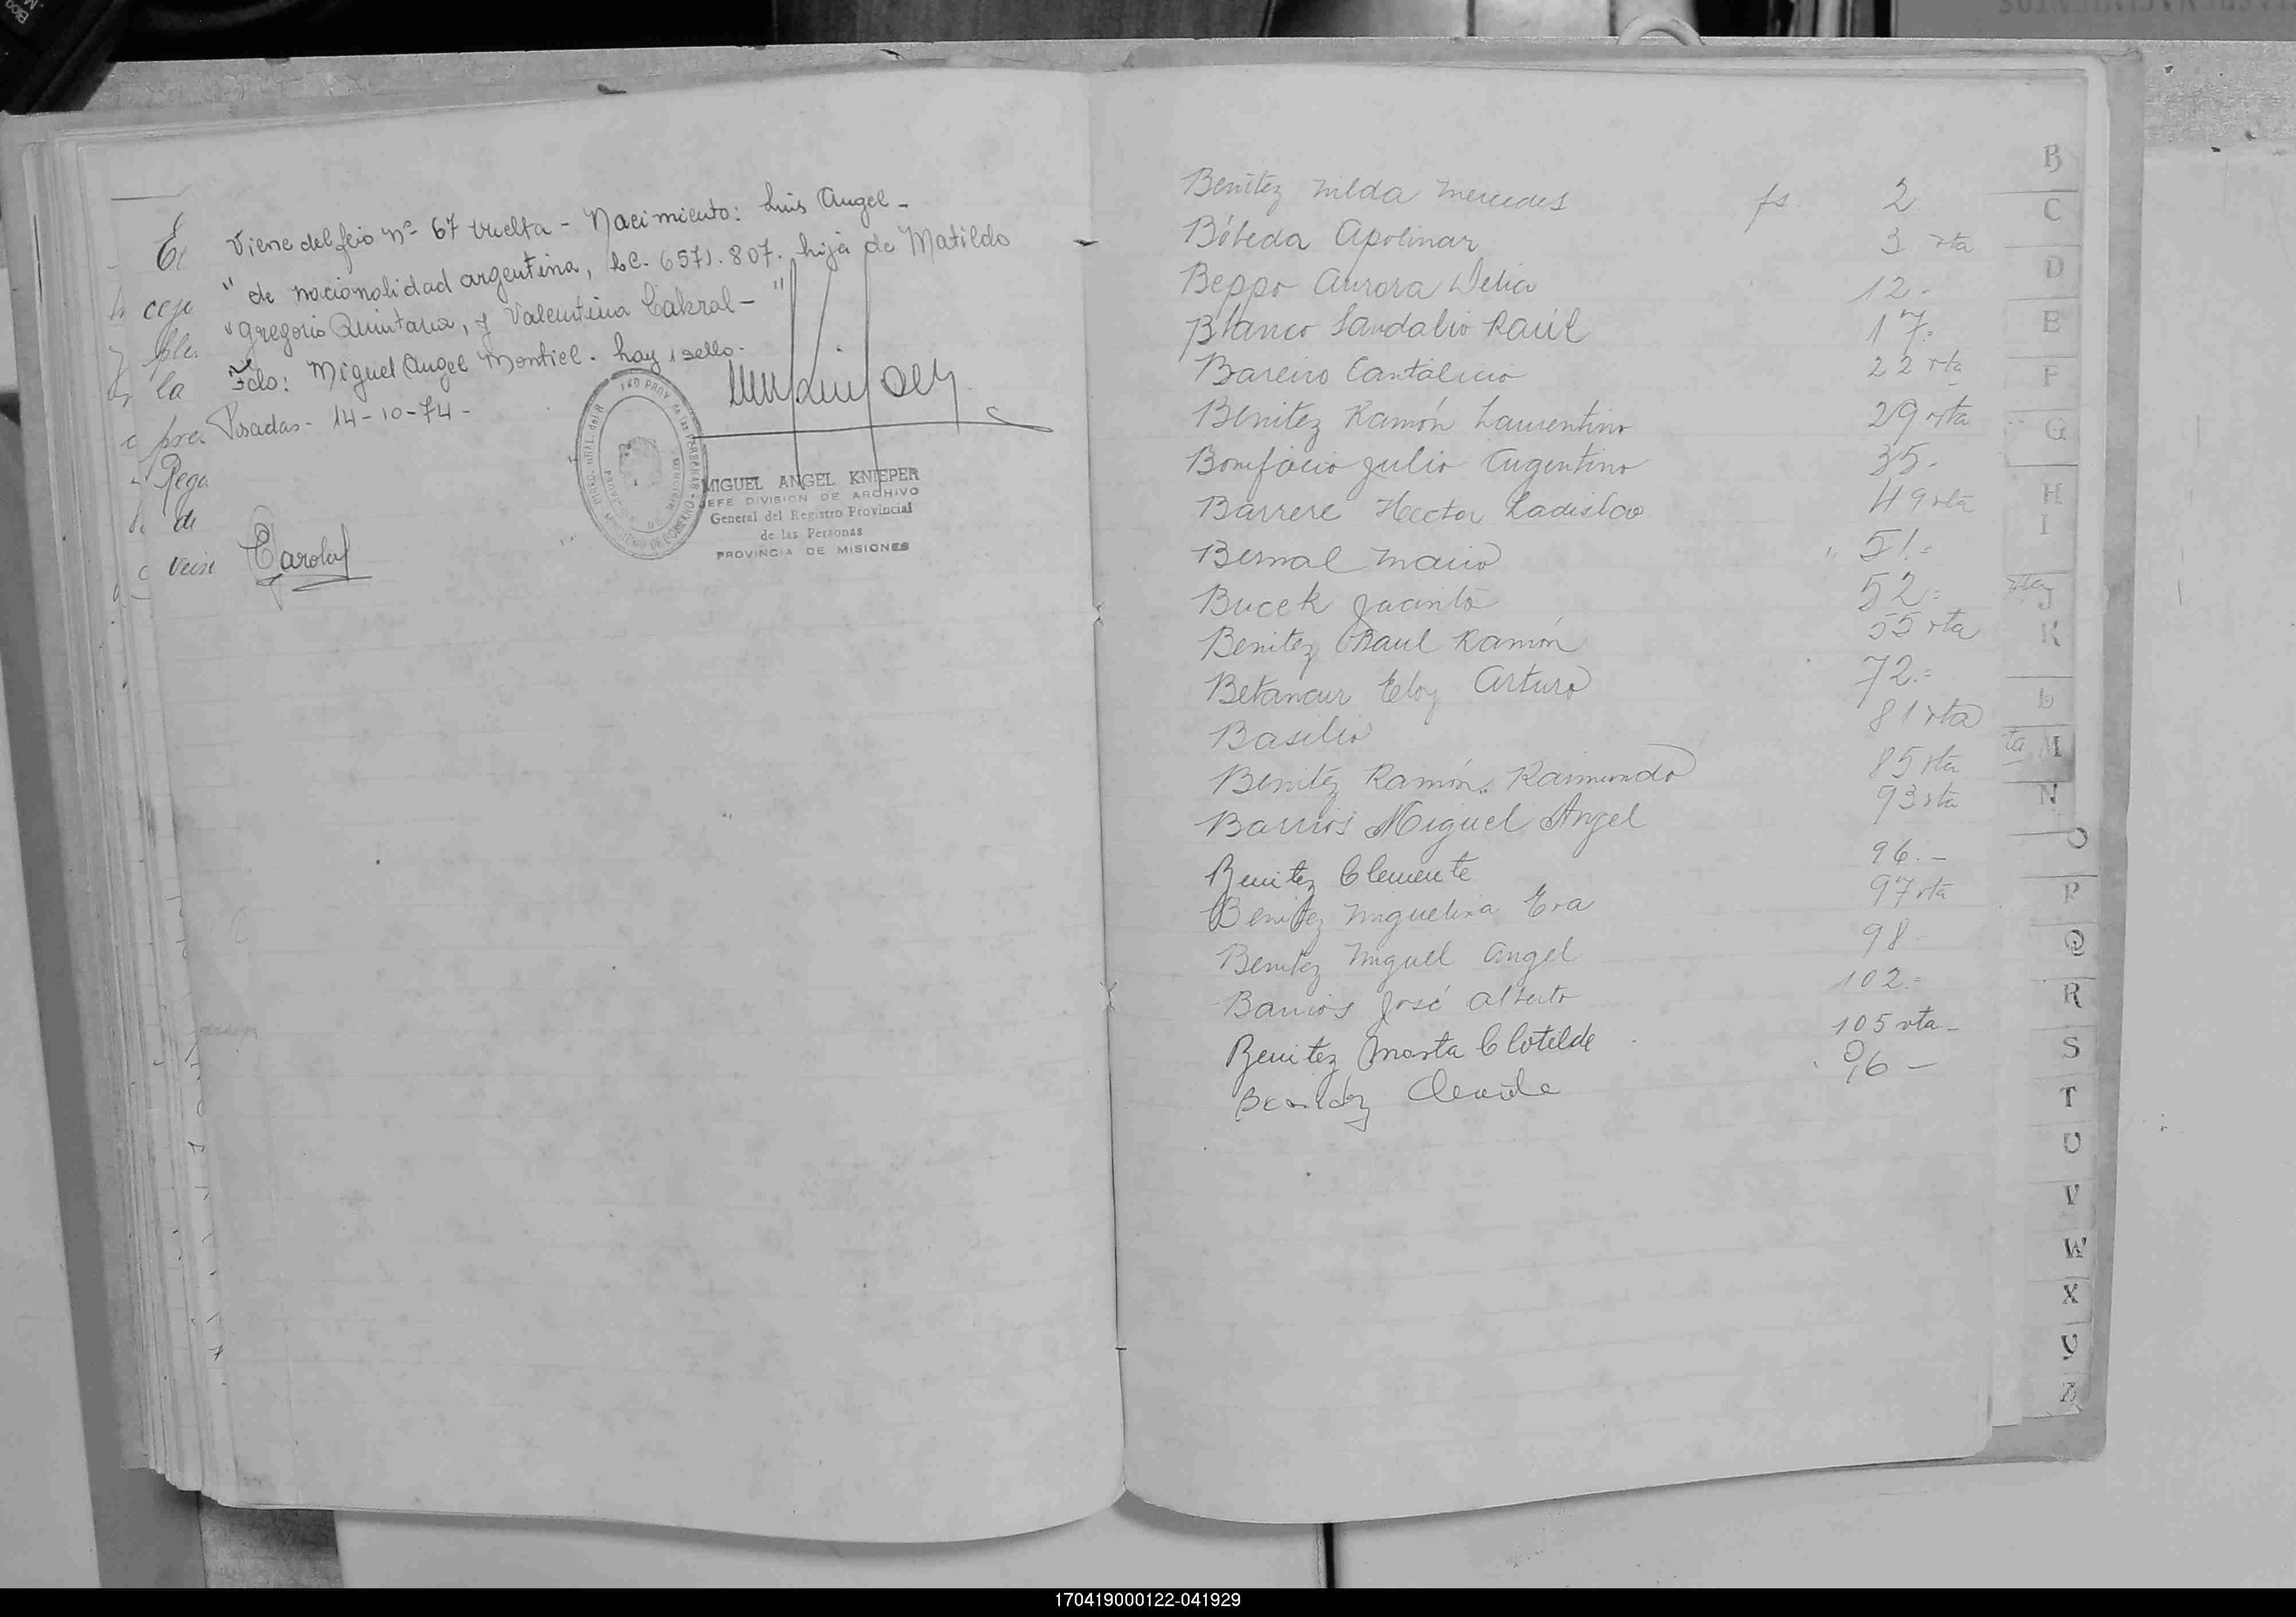 Viene del feio nº 67 vuelta - Nacimiento: Luis Angel -
" de nacionalidad argentina, L.C. 6571.807. hija de Matildo
" Gregorio Quintana, y Valentina Cabral - "
Fdo: Miguel Angel Montiel. hay 1 sello.
Posadas - 14-10-74 -
MIGUEL ANGEL KNIEPER
JEFE DIVISION DE ARCHIVO
General del Registro Provincial
de las Personas
PROVINCIA DE MISIONES
El
cejo
ple.
la
pre.
Rega
de
vein
Benítez Nilda Mercedes fs. 2
Bóbeda Apolinar 3 vta
Beppo Aurora Delia 12.-
Blanco Sandalio Raúl 17.-
Bareiro Cantalicio 22 vta
Benitez Ramón Laurentino 29 vta
Bonifacio Julio Argentino 35.-
Barrere Hector Ladislao 49 vta
Bernal Mario " 51.=
Bucek Jacinto 52=
Benitez Raul Ramón 55 vta
Betancur Eloy Arturo 72.=
Basilio 81 vta
Benitéz Ramón Raimundo 85 vta
Barrios Miguel Angel 93 vta
Benitez Clemente 96.-
Benitez Miguelina Eva 97 vta
Benitez Miguel Angel 98
Barrios José Alberto 102.=
Benitez Marta Clotilde 105 vta-
96 -
B
C
D
E
F
G
H
I
J
K
L
ta M
N
O
P
Q
R
S
T
U
V
W
X
Y
Z
170419000122-041929